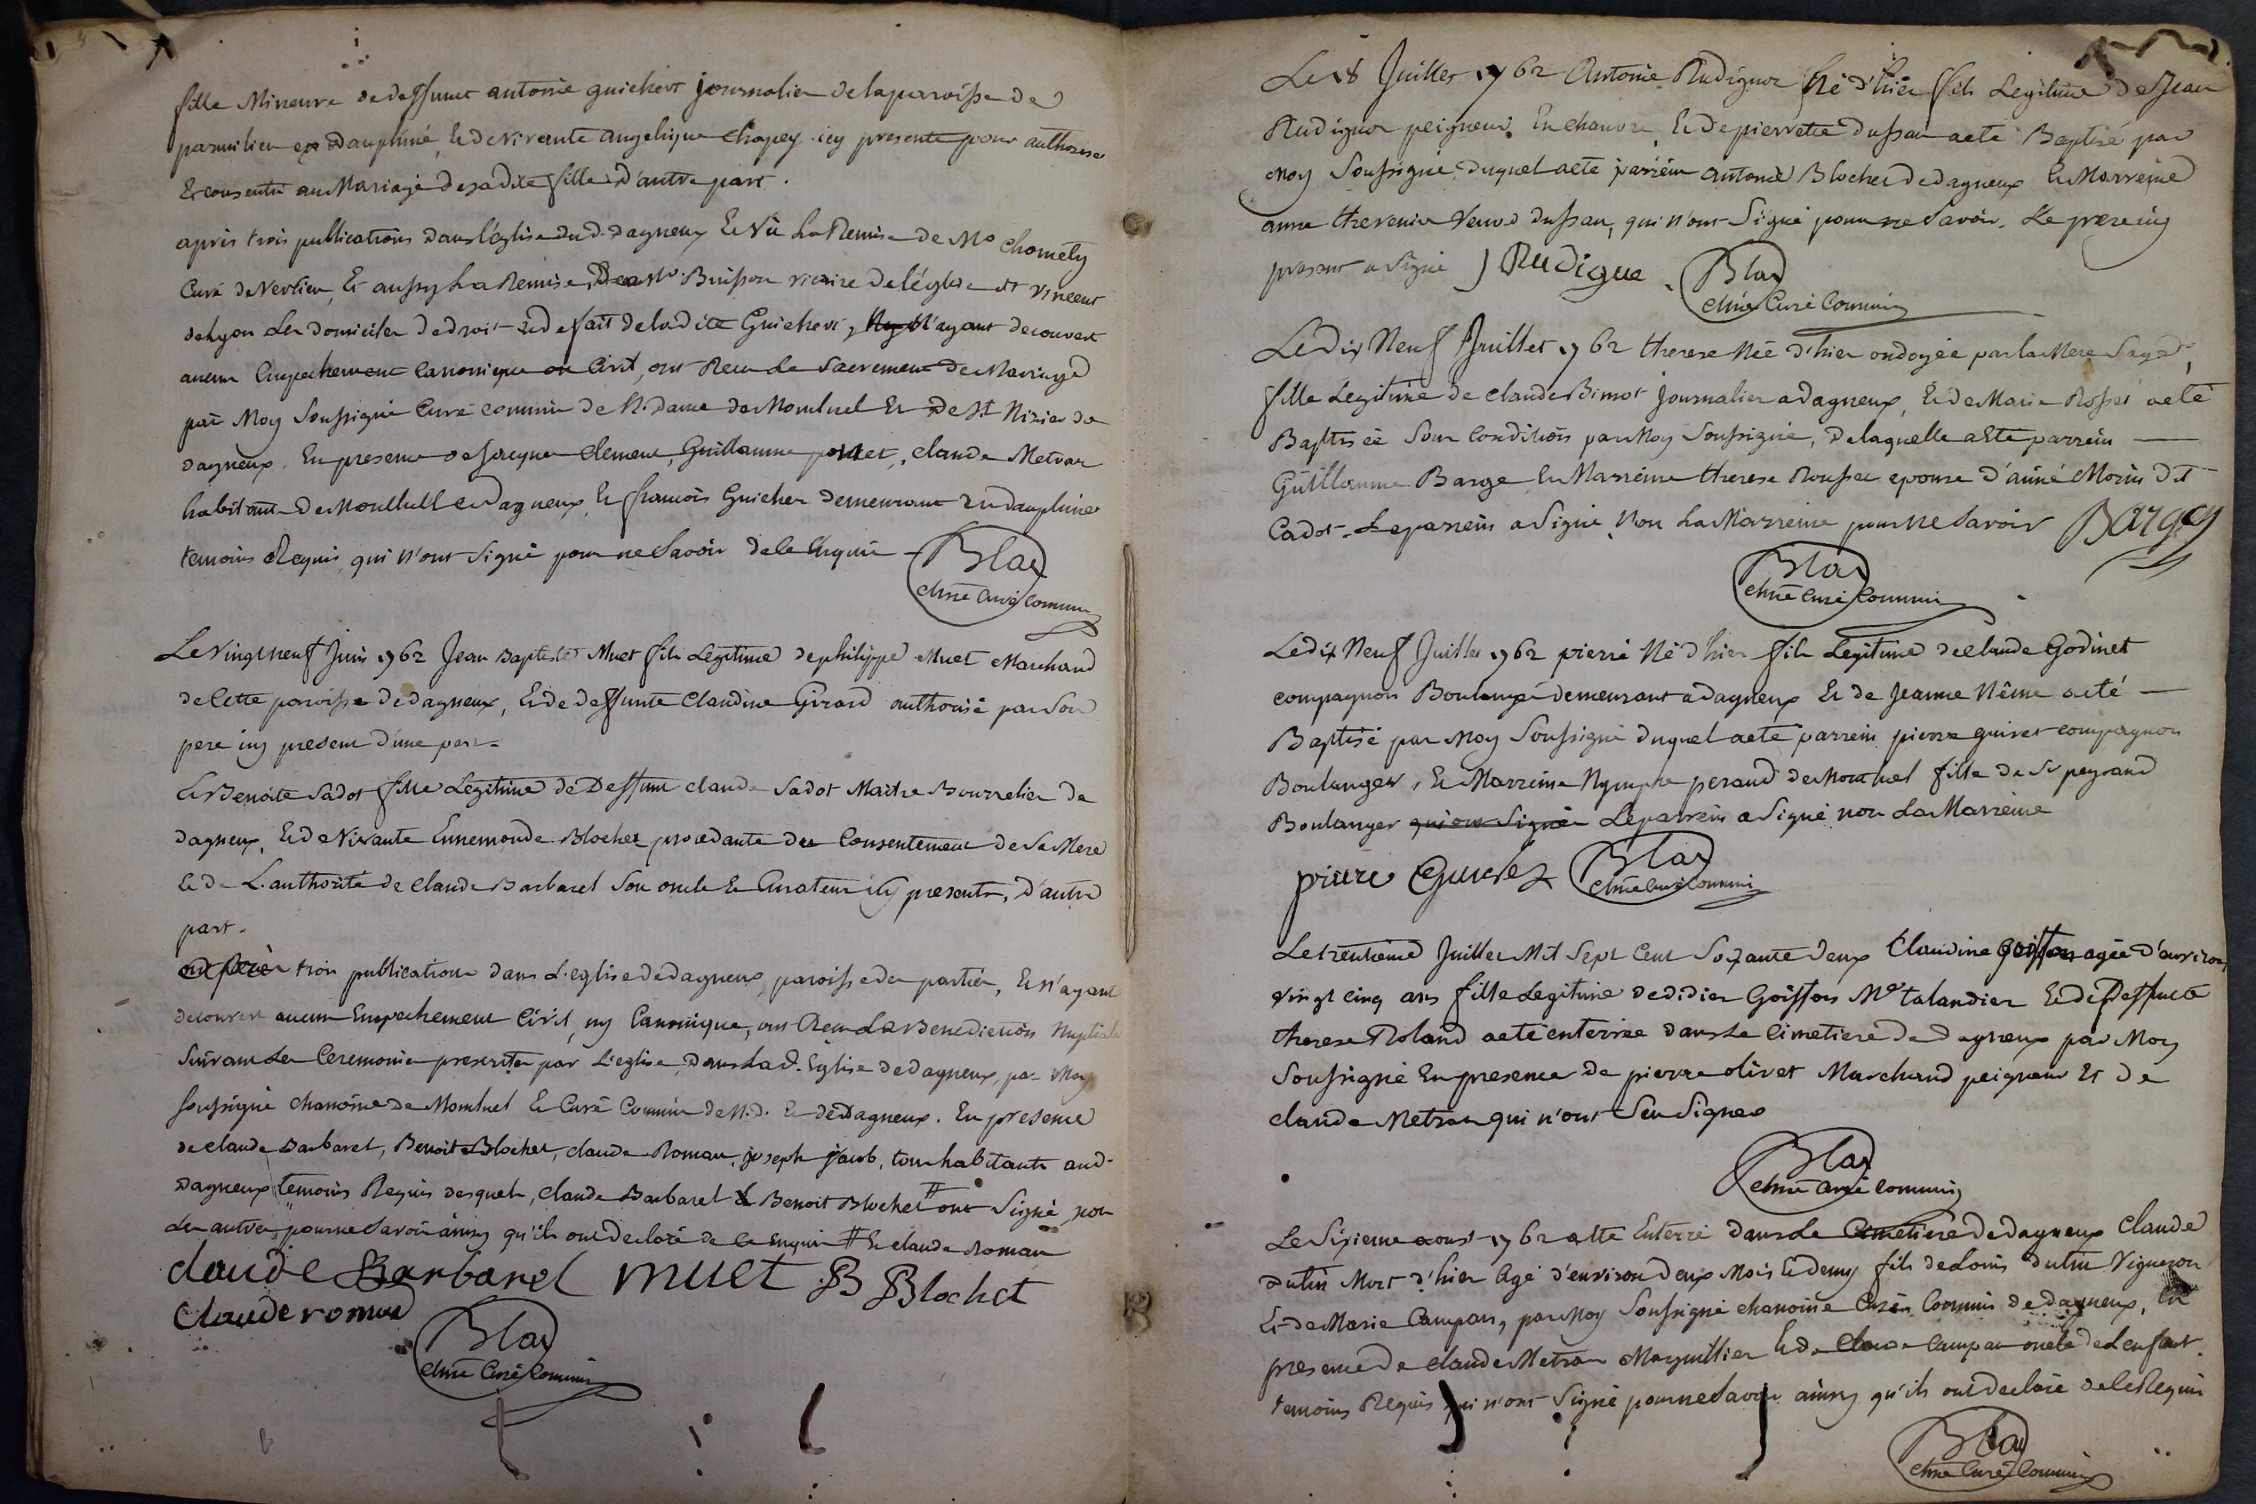 fille Mineure de deffunct antoine guichert journalier de la paroisse de
parmilieu en dauphiné, et de vivante angelique chapey icy presente pour authoriser
Et consentir au Mariage de sa dite fille d'autre part.
après trois publications dans l'église dud. dagneux Et vû La Remise de Mr chomety
Curé de Nevlieu, Et aussy La Remise de Mr Buisson vicaire de l'église st vincent
de Lyon Les domiciles de droit et de fait de ladite Guichert, N'ayant decouvert
aucun Empechement Canonique ou Civil, ont Receu Le Sacrement de Mariage
par Moy Soussigné Curé commis de N. Dame de Montluel Et de St Nizier de
dagneux. En presence de jacque clement, Guillaume ponet, claude Metran
habitants de Montluel et dagneux, Et francois Guicher demeurant en dauphiné
temoins Requis, qui n'ont Signé pour ne Savoir de ce Enquis
Blad
chne Curé Commis
Le vingt neuf Juin 1762 Jean Baptiste Muet fils Legitime de philippe Muet Marchand
de Cette paroisse de dagneux, Et de deffunte Claudine Girard authorisé par Son
pere icy present d'une part.
Et Benoite Sadot fille Legitime de Deffunt claude Sadot Maitre Bourrelier de
dagneux, Et de Vivante Ennemonde Blochet procedante du Consentement de Sa Mere
Et de L'authorité de claude Barbaret Son oncle Et Curateur icy presents, d'autre
part.
après trois publications dans L'eglise de dagneux, paroisse des parties, Et n'ayant
decouvert aucun Empechement Civil, ny Canonique, ont Receu La Benediction Nuptiale
Suivant Les Ceremonies prescrites par L'eglise, dans Lad. Eglise de dagneux, par Moy
soussigné chanoine de Montluel Et Curé Commis de N.d. Et de dagneux. En presence
de claude Barbaret, Benoit Blochet, claude Roman, joseph jacob, tous habitants aud.
dagneux temoins Requis desquels, claude Barbaret & Benoit Blochet # ont Signé, non
Les autres pour ne Savoir ainsy qu'ils ont declaré de ce Enquis # Et claude Roman
claude Barbaret muet B Blochet
Claude roman
Blad
chne Curé Commis
Le 18 Juillet 1762 Antoine Rudignoz Né d'hier fils Legitime de Jean
Rudignoz peigneur En chanvre Et de pierrette dussau a eté Baptisé par
Moy Soussigné, duquel a eté parrein antoine Blochet de dagneux Et Marreine
anne thevenin veuve dussau, qui n'ont Signé pour ne Savoir. Le pere icy
present a Signé J Rudigue
Blad
chne Curé Commis
Le dix Neuf Juillet 1762 therese Née d'hier ondoyée par la Mere Sage,
fille Legitime de claude Bimot journalier a dagneux, Et de Marie Rosset a eté
Baptisée Sous Condition par Moy Soussigné, de laquelle a Eté parrein
Guillaume Barge Et Marreine therese Rousset epouse d'aimé Morin dit
Cadot. Le parrein a Signé Non La Marreine pour ne Savoir Barge
Blad
chne Curé Commis
Le dix Neuf Juillet 1762 pierre Né d'hier fils Legitime de claude Godinet
compagnon Boulanger demeurant a dagneux Et de Jeanne Nême a eté
Baptisé par Moy Soussigné duquel a eté parrein pierre guivet compagnon
Boulanger, Et Marreine Nymphe peraud de Montluel fille de Sr peyraud
Boulanger qui ont Signé Le parrein a Signé non La Marreine
pierre Guivet
Blad
chne Curé Commis
Le trentieme Juillet Mil Sept Cent Soixante deux Claudine goiffon agée d'environ
vingt cinq ans fille Legitime de didier Goiffon Me talandier Et de Deffuncte
therese Roland a eté enterrée dans Le Cimetiere de dagneux par Moy
Soussigné En presence de pierre olivet Marchand peigneur Et de
claude Metran qui n'ont Seu Signer
Blad
chne Curé Commis
Le Sixieme aoust 1762 a été Enterré dans Le Cimetiere de dagneux Claude
dutin Mort d'hier Agé d'environ deux Mois Et demy fils de Louis dutin Vigneron
Et de Marie Campan, par Moy Soussigné chanoine Curé Commis de dagneux, En
presence de claude Metran Marguillier Et de Claude Campan oncle de L'enfant.
temoins Requis qui n'ont Signé pour ne Savoir ainsy qu'ils ont declaré de ce Requis
Blad
chne Curé Commis